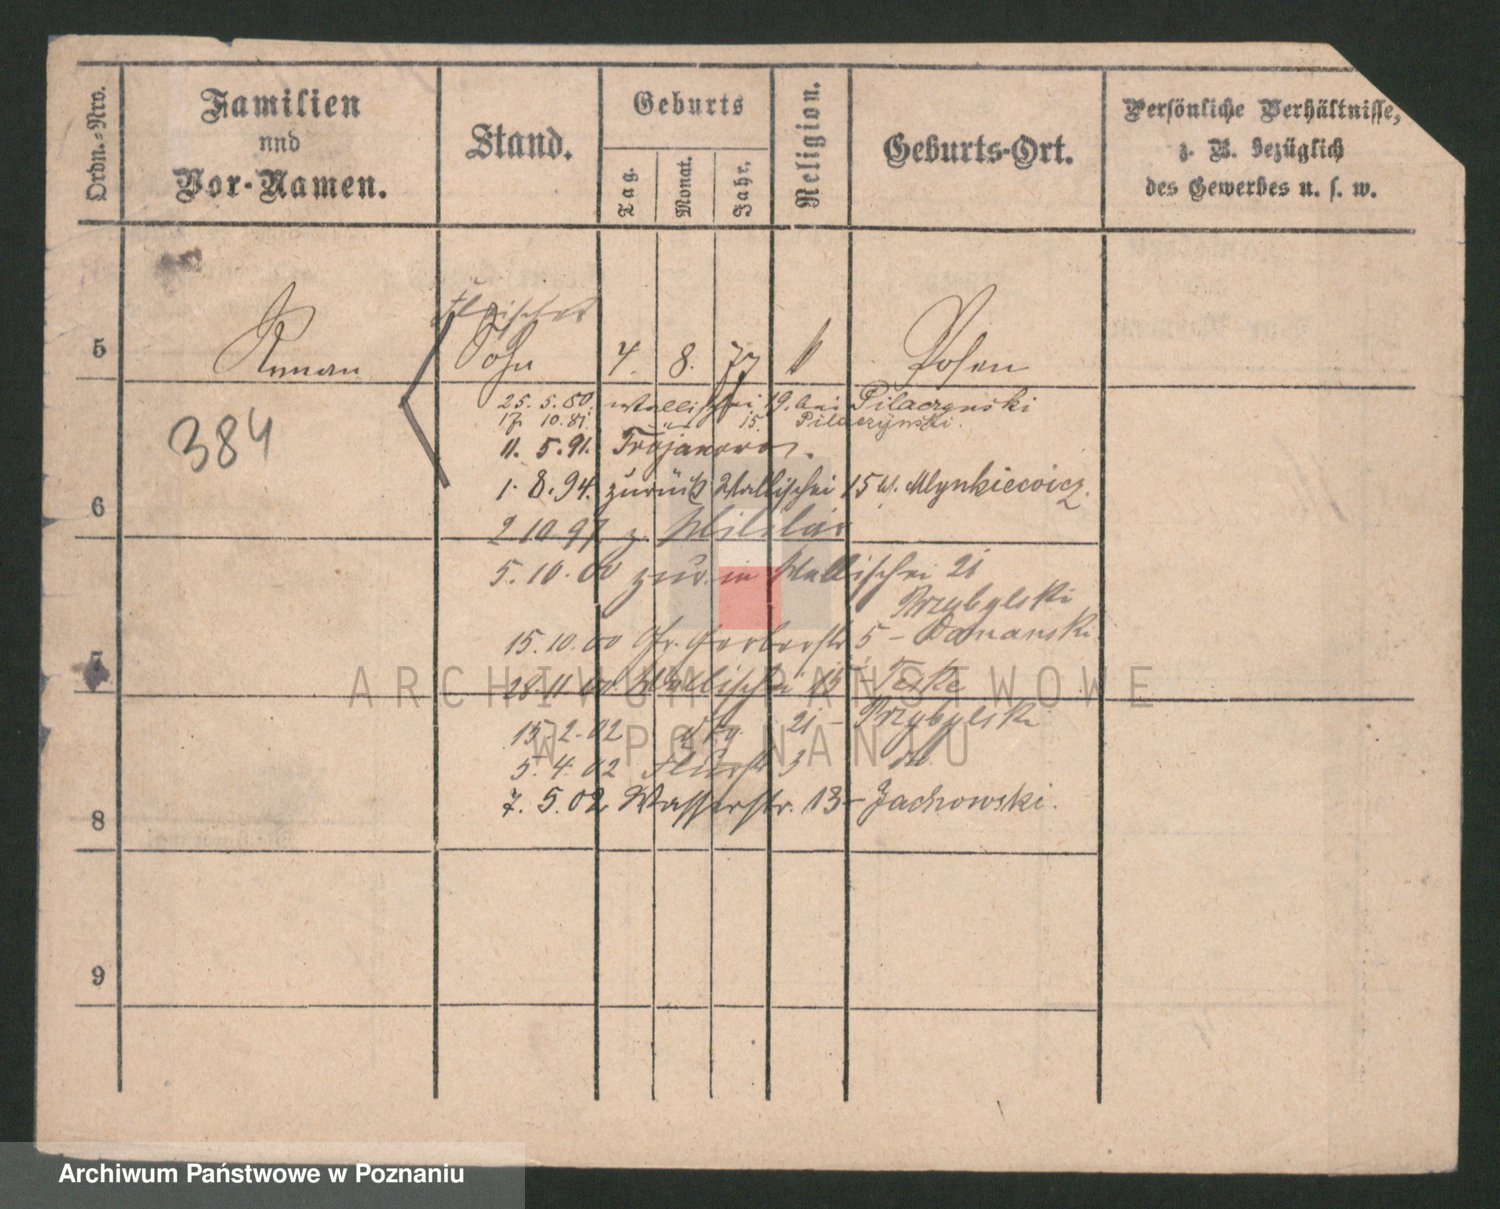 Ordn.-Nro.
Familien
und
Vor-Namen.
Stand.
Geburts
Tag.
Monat.
Jahr.
Religion.
Geburts-Ort.
Persönliche Verhältnisse,
z. B. bezüglich
des Gewerbes u. s. w.
Fleischer
5 Roman Sohn 4. 8. 77 k Posen
384
25. 5. 80. Wallischei 19. bei Pilaczynski
17 10. 81. 15. Pilaczynski.
11. 5. 91. Trojanowo.
6
1. 8. 94. zurück Wallischei 15 W. Mlynkiewicz.
2 10 97 z. Militär
5. 10. 00 zur. in Wallischei 21
Przybylski
15. 10. 00 Gr. Gerberstr. 5 - Domanski
28 11 00 Wallischei 15 Teske
15. 2. 02 21 - Przybylski
5. 4. 02 3
7. 5. 02 Wasserstr. 13 - Jachowski.
8
9
ARCHIWUM PAŃSTWOWE
W POZNANIU
Archiwum Państwowe w Poznaniu